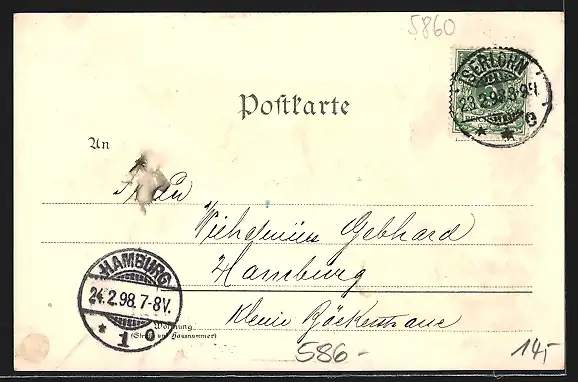 5860
ISERLOHN
23.2.98.8-9N.
REICHSPOST
* * c
Postkarte
An
Frau
Wilhelmine Gebhard
Hamburg
HAMBURG
24.2.98.7-8V.
* 1 c
Kleine Bäckerstraße
Wohnung
(Straße und Hausnummer)
586-
14,-